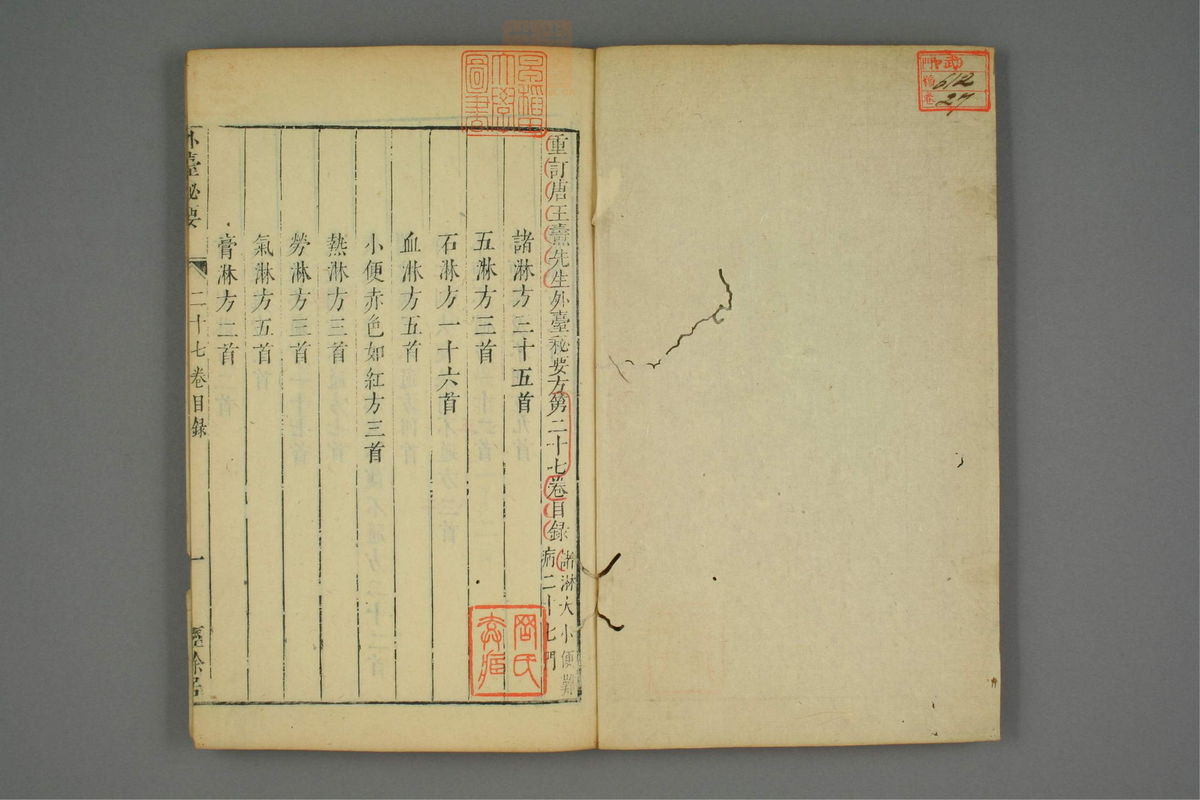 門
武
六二
卷
27
早稲田大學圖書
重訂唐王燾先生外臺秘要方第二十七卷目録
諸淋大小便難
病二十七門
諸淋方三十五首
五淋方三首
石淋方一十六首
血淋方五首
小便赤色如紅方三首
熱淋方三首
勞淋方三首
氣淋方五首
膏淋方二首
外臺秘要
二十七卷目録
一
經餘居